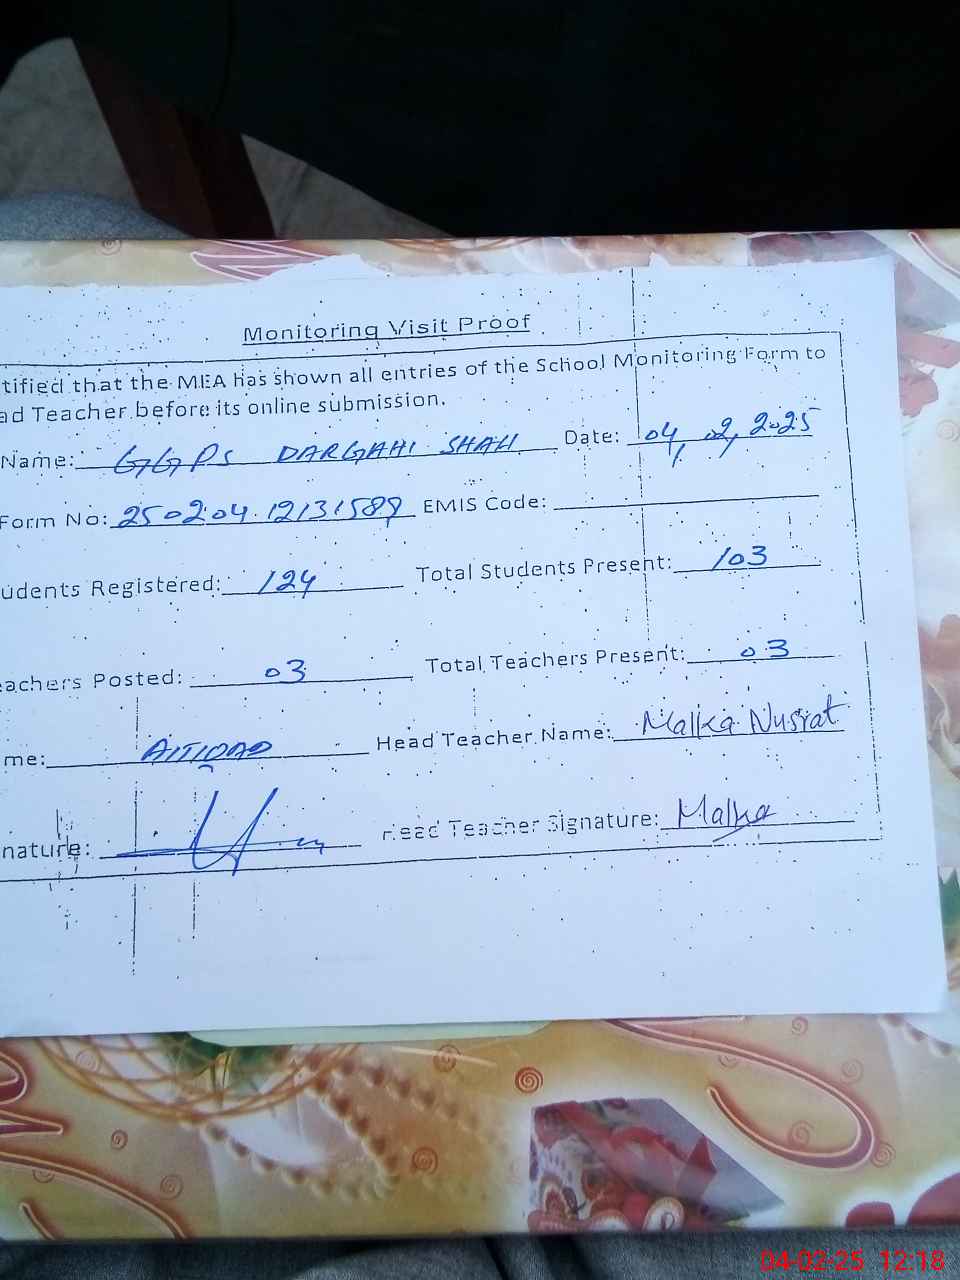 Monitoring Visit Proof
tified that the MEA has shown all entries of the School Monitoring Form to
ad Teacher before its online submission.
Name: GGPS DARGAHI SHAH Date: 04, 02, 2025
Form No: 250204.12131589 EMIS Code:
udents Registered: 124 Total Students Present: 103
eachers Posted: 03 Total Teachers Present: 03
me: Head Teacher Name: Malka Nusrat
nature: Head Teacher Signature: Malka
04-02-25 12:18